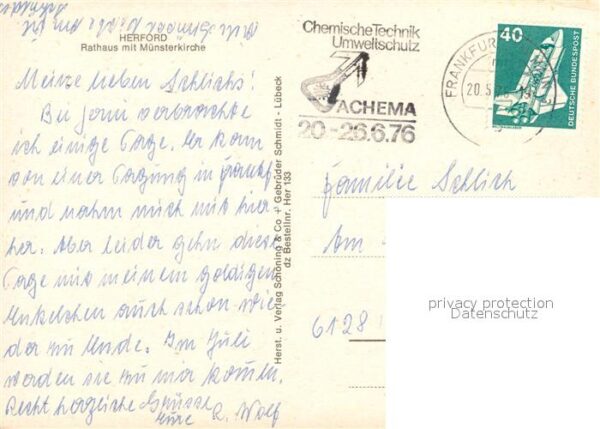 HERFORD
Rathaus mit Münsterkirche
Meine lieben Schlichs!
Bei Jorni verbrachte
ich einige Tage. Er kam
von einer Tagung in Frankf
und nahm mich mit hier-
her. Aber leider gehn diese
Tage mit meinem goldigen
Enkelchen auch schon wie-
der zu Ende. Im Juli
werden sie zu mir kommen.
Recht herzliche Grüsse
Eure R. Wolf
Herst. u. Verlag Schöning & Co + Gebrüder Schmidt - Lübeck
dz Bestellnr. Her 133
Chemische Technik
Umweltschutz
ACHEMA
20-26.6.76
FRANKFUR
20.5.76
40
DEUTSCHE BUNDESPOST
Familie Schlich
Am
6128
privacy protection
Datenschutz